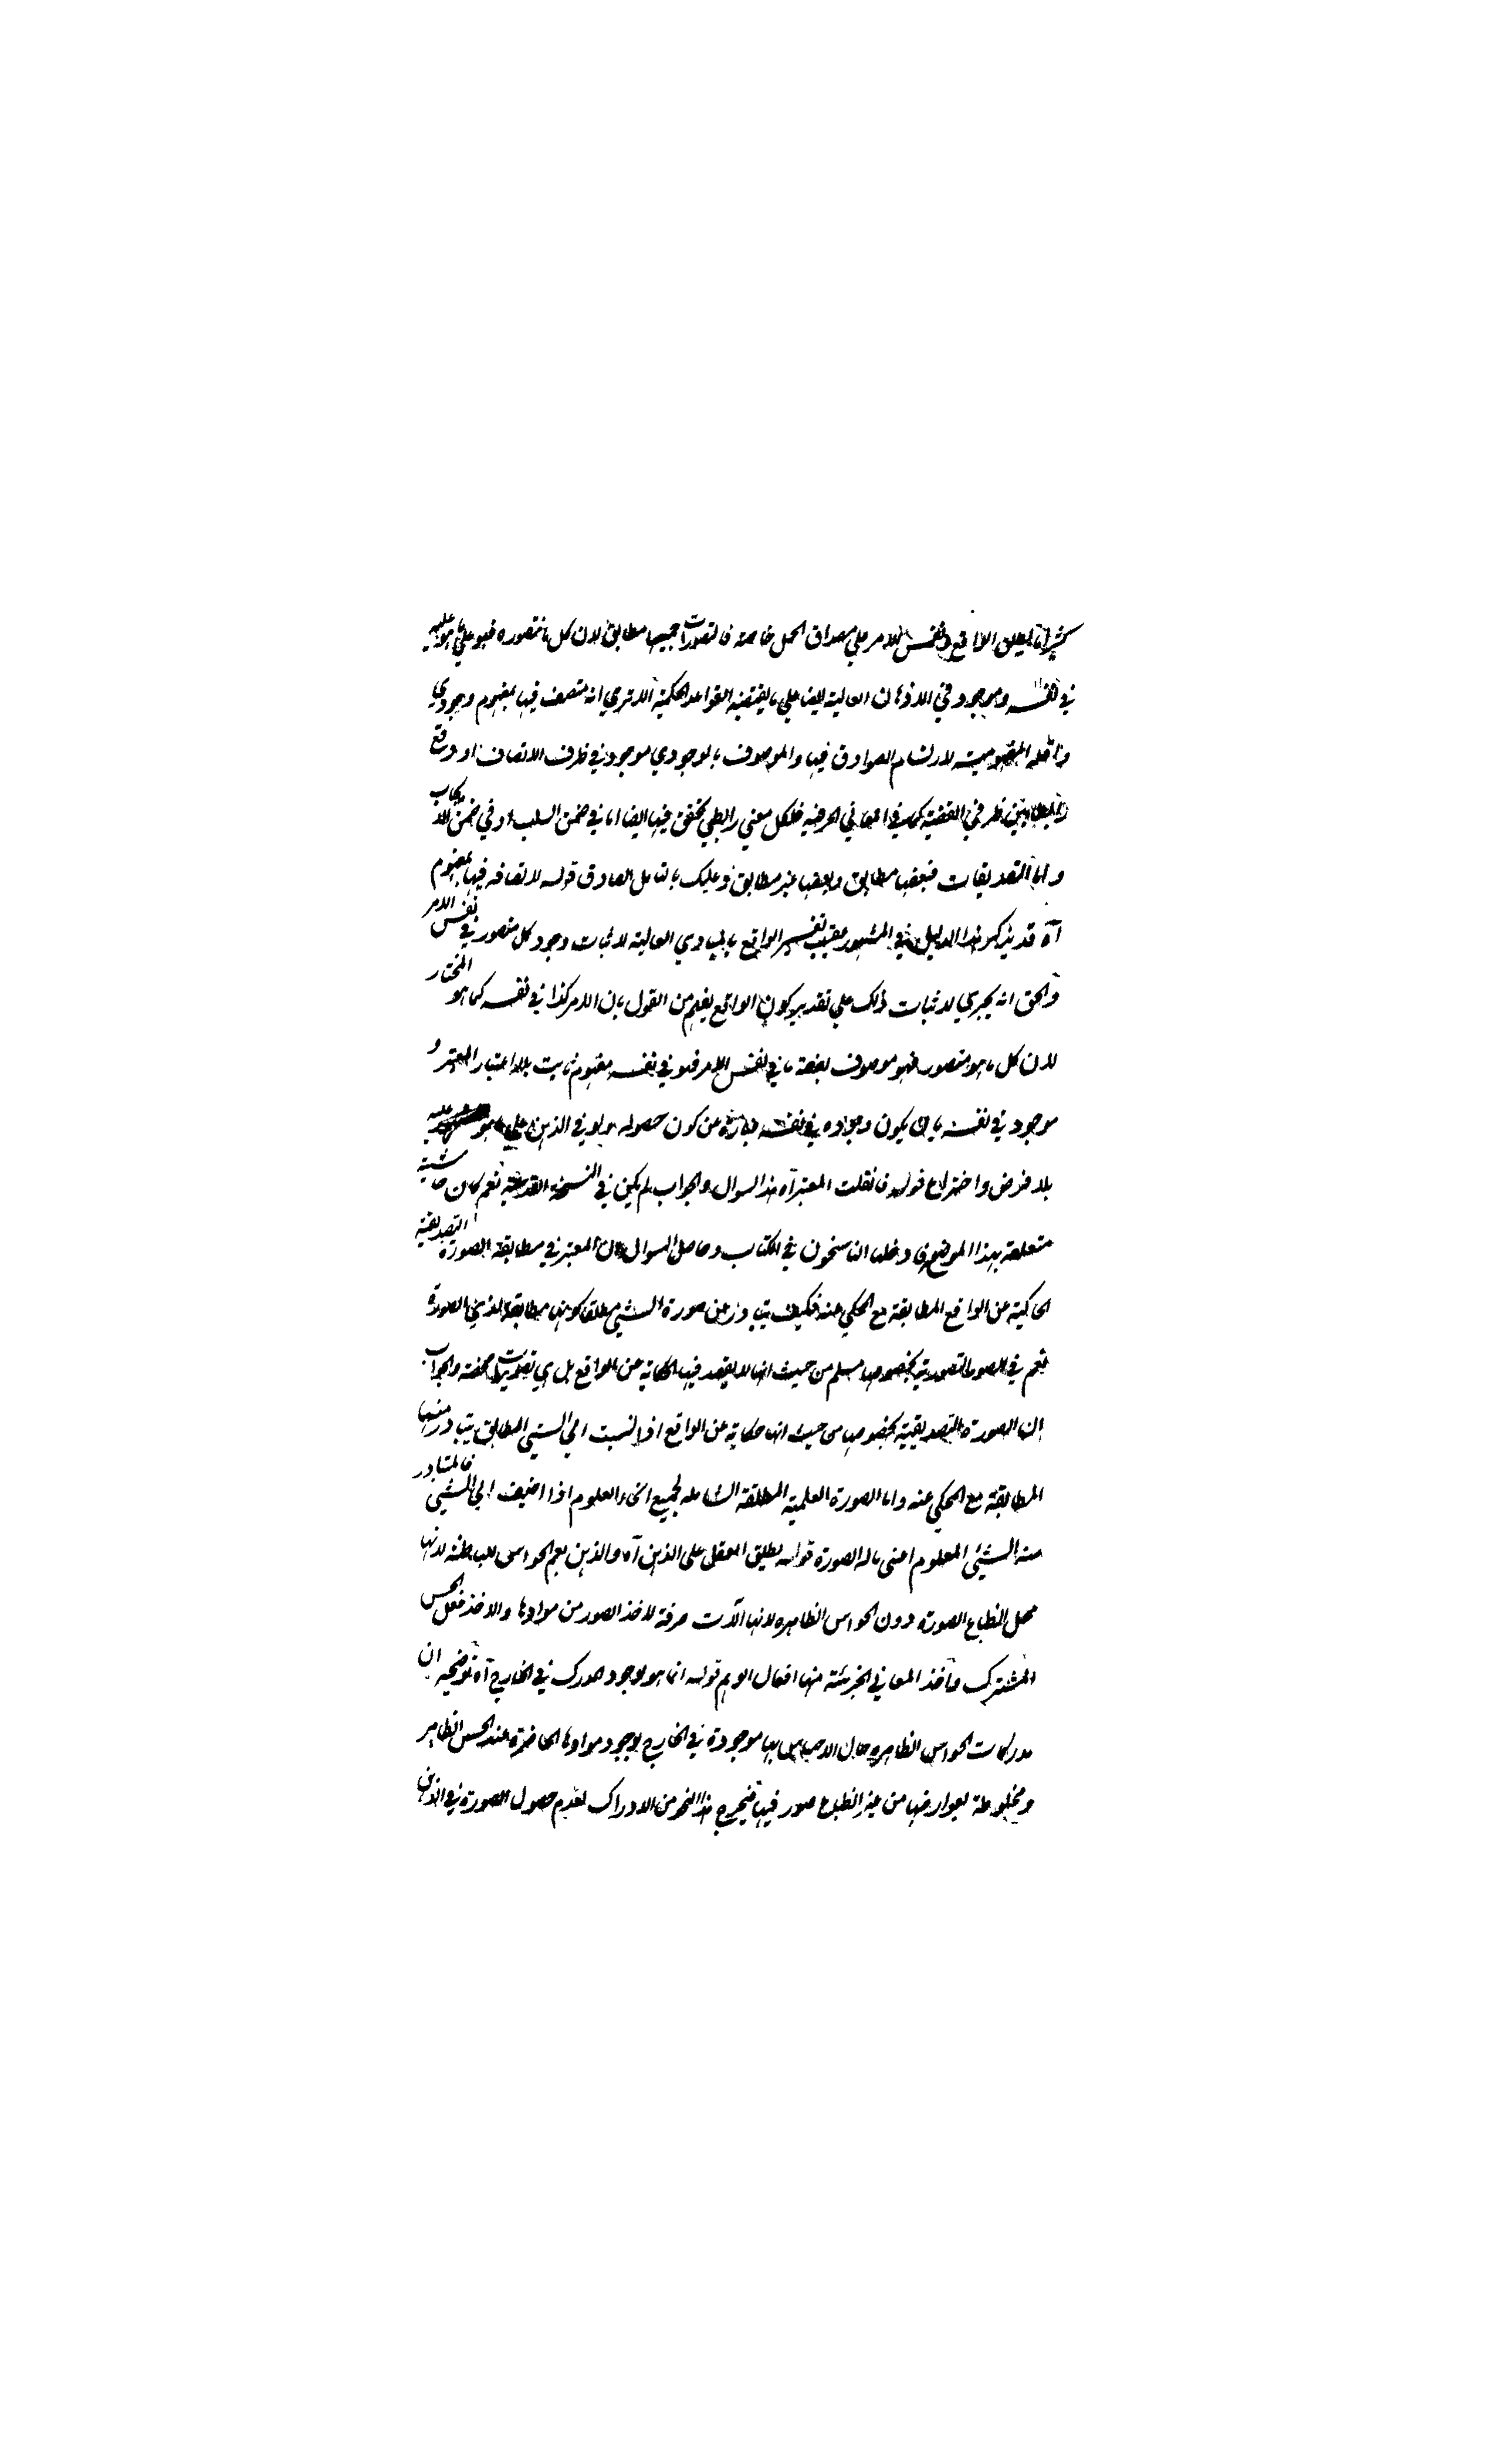 كثيرا ما يطلق الواقع ونفس الامر علي مصداق الحمل خاصة فالتصورات جميعها مطابق لان كل ما نتصوره فهو علي ما هو عليه
في نفسه وموجود في الاذهان العالية ايضا علي ما يقتضيه القواعد الحكمية الا تري انه متصف فيها بمفهوم وجودي
المفهومية لارتسام الصوادق فيها والموصوف بالوجودي موجود في ظرف الاتصاف
في القضية كما في المعاني الحرفية فلكل معني رابطي تحقق فيها ايضا اما في ضمن السلب او في ضمن الايجاب
واما التصديقات فبعضها مطابق وبعضها غير مطابق وعليك بالتامل الصادق قوله لاتصافه فيها بمفهوم
آه قد يذكر هذا الدليل في المشهور عقيب تفسير الواقع بالمبادي العالية لاثبات وجود كل متصور في نفس الامر
والحق انه يجري لاثبات ذلك علي تقدير كون الواقع يفهم من القول بان الامر كذا في نفسه كما هو المختار
لان كل ما هو متصور فهو موصوف بصفة ما في نفس الامر فهو في نفسه مفهوم ثابت بلا اعتبار المعتبر و
موجود في نفسه بان يكون وجوده في نفسه عبارة عن كون حصوله ولو في الذهن علي ما هو عليه
بلا فرض واختراع قوله فان قلت المعتبر آه هذا السوال والجواب لم يكن في النسخة القديمة نعم كان حاشية
متعلقة بهذا الموضع فادخلها الناسخون في الكتاب وحاصل السوال ان المعتبر في مطابقة الصورة التصديقية
الحاكية عن الواقع المطابقة مع المحكي عنه فكيف يتبادر من صورة الشئ مطلقا كونها مطابقة لذي الصورة
نعم في الصورة التصورية بخصوصها مسلم من حيث انها لا يقصد فيها الحكاية عن الواقع بل هي تصويرات محضة والجواب
ان الصورة التصديقية بخصوصها من حيث انها حكاية عن الواقع اذا نسبت الي الشئ المطابق يتبادر منها
المطابقة مع المحكي عنه واما الصورة العلمية المطلقة الشاملة لجميع انحاء العلوم اذا اضيف الي الشئ فالمتبادر
منه الشئ المعلوم اعني ما له الصورة قوله يطلق العقل علي الذهن آه والذهن يعم الحواس الباطنة لانها
محل انطباع الصورة دون الحواس الظاهره لانها آلات صرفة لاخذ الصور من موادها والاخذ فعل الحس
المشترك واخذ المعاني الجزئية منها افعال الوهم قوله انما هو لوجود المدرك في الخارج آه توضيحه ان
مدركات الحواس الظاهره حال الاحساس بها موجودة في الخارج بوجود موادها الحاضرة عند الحس الظاهر
ومخلوطة بعوارضها من غير انطباع صور فيها فيخرج هذا النحو من الادراك لعدم حصول الصورة في الذهن